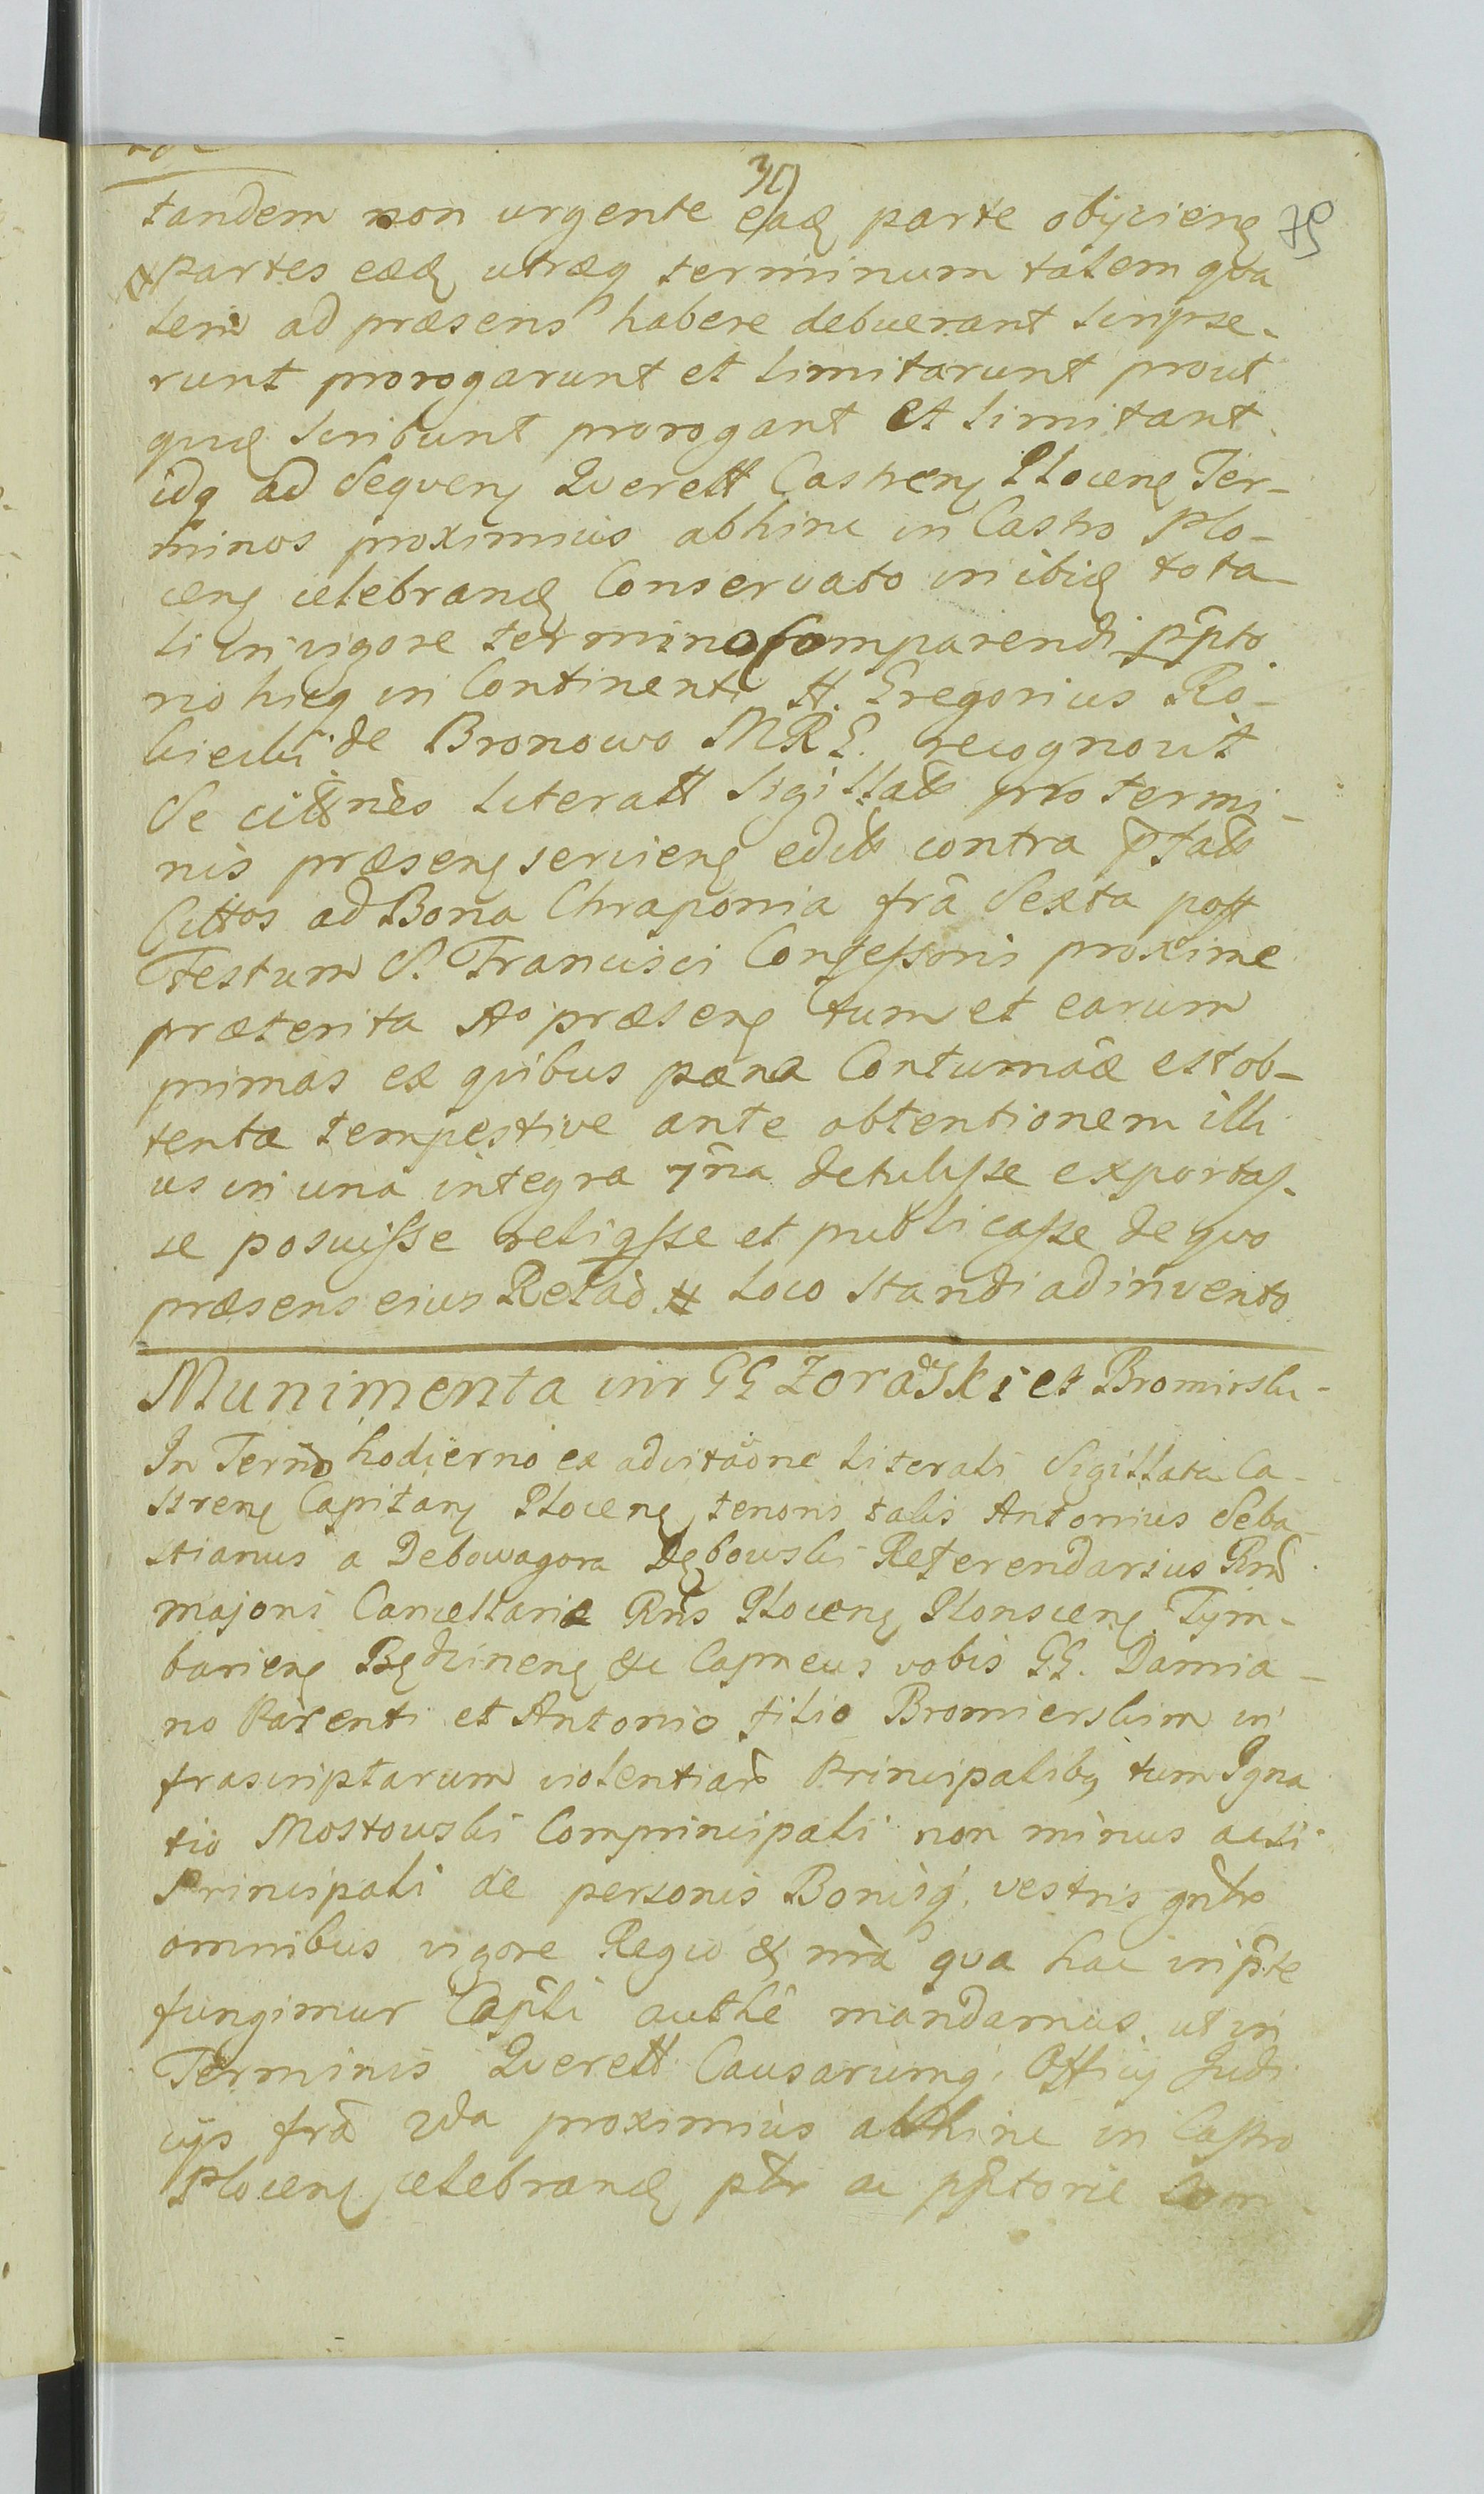 30
tandem non urgente eadq parte obijcienq
& partes eædq utræq terminum talem qva
lem ad præsens habere debuerant scripse-
runt prorogarunt et limitarunt prout
quidq scribunt prorogant et limitant
idq ad sequenq Querell Castrenq Plocenq Ter-
minos proximius abhinc in Castro Plo-
cenq celebrandq Conservato in ibidq tota
li in vigore termino Comparendi pptо
rio hicq in Continenti H. Gregorius Ro-
kicki de Bronowo MRG. recognovit
Se citõnẽs literall Sigillatt pro termi-
nis præsenq servienq editt contra ptatt
Cittos ad Bona Chraponia frã Sexta post
Festum S. Francisci Confessoris proxime
præterita Aõ præsenq tum et earum
primas ex qvibus pæna Contumaciæ est ob-
tenta tempestive ante obtentionem illi
us in una integra 7mna detulisse exportas-
se posuisse reliqsse et publicasse de quo
præsens eius Relaõ # Loco standi adinvento
Munimenta intr GG Zorawski et Bromirski-
In Termo hodierno ex adcitaõne literali Sigillata Ca-
strenq Capitanq Plocenq tenoris talis Antonius Seba-
stianus a Debowagora Dębowski Referendarius Rnĩ
majoris Cancellariæ Rnis Plocenq Plonscenq Tym-
barienq Będzinenq &c Capneus vobis GG. Damia-
no Parenti et Antonio filio Bromierskim in
frascriptarum violentiarũ Principalibq tum Igna
tio Mostowski Comprincipali non minus acsi
Principali de personis Bonisq. vestris gnlr
omnibus vigore Regio & nrã qva hac in pte
fungimur Capli authẽ mandamus, ut in
Terminis Querell Causarumq. Officij Judi
cijs frã 2da proximius abhinc in Castro
Plocenq celebrandq ptr ac pptorie Com-